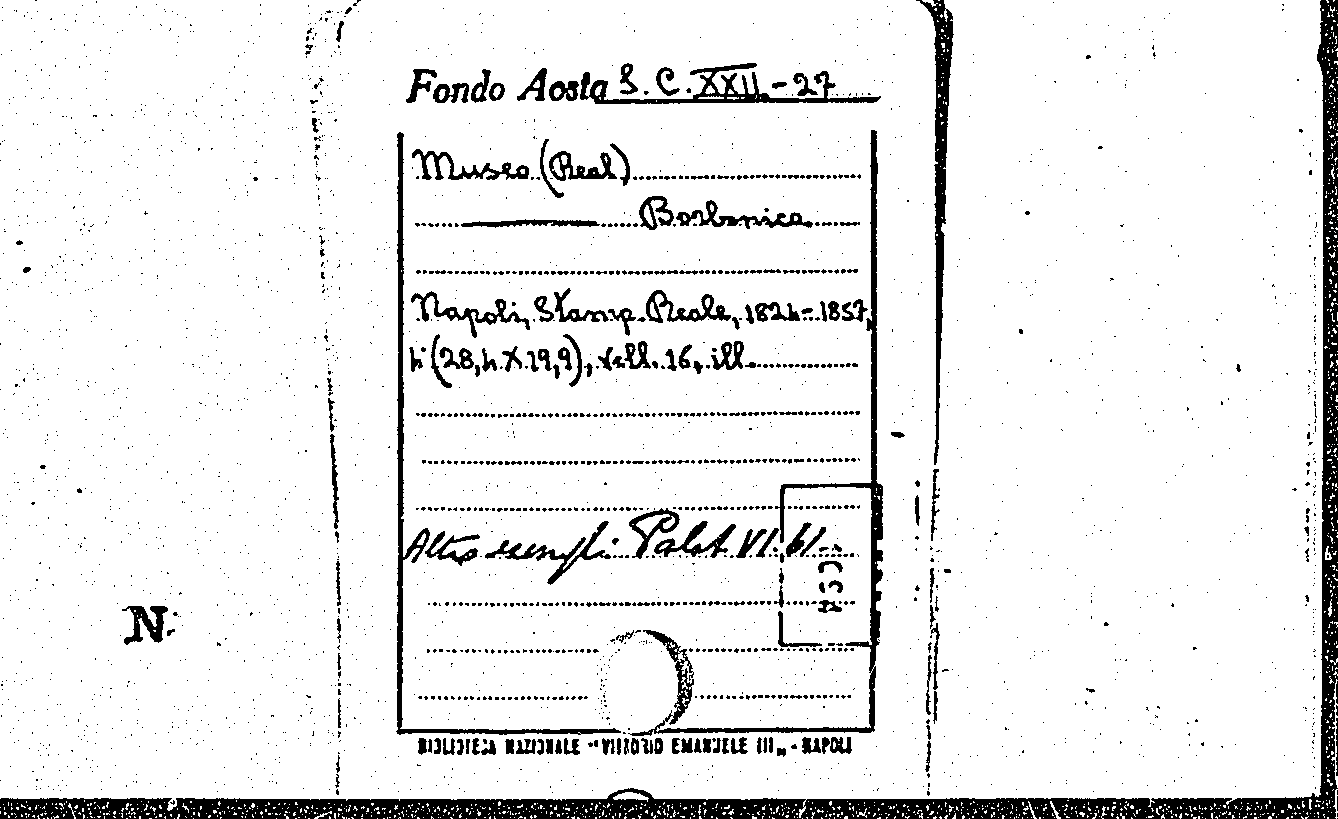 Fondo Aosta S. C. XXII.-27
Museo (Real)
Borbonico
Napoli, Stamp. Reale, 1824-1857,
4° (28,4 X 19,9), voll. 16, ill.
Altro esempl: Palat. VI. 61.
CSA
N
BIBLIOTECA NAZIONALE "VITTORIO EMANUELE III„ - NAPOLI